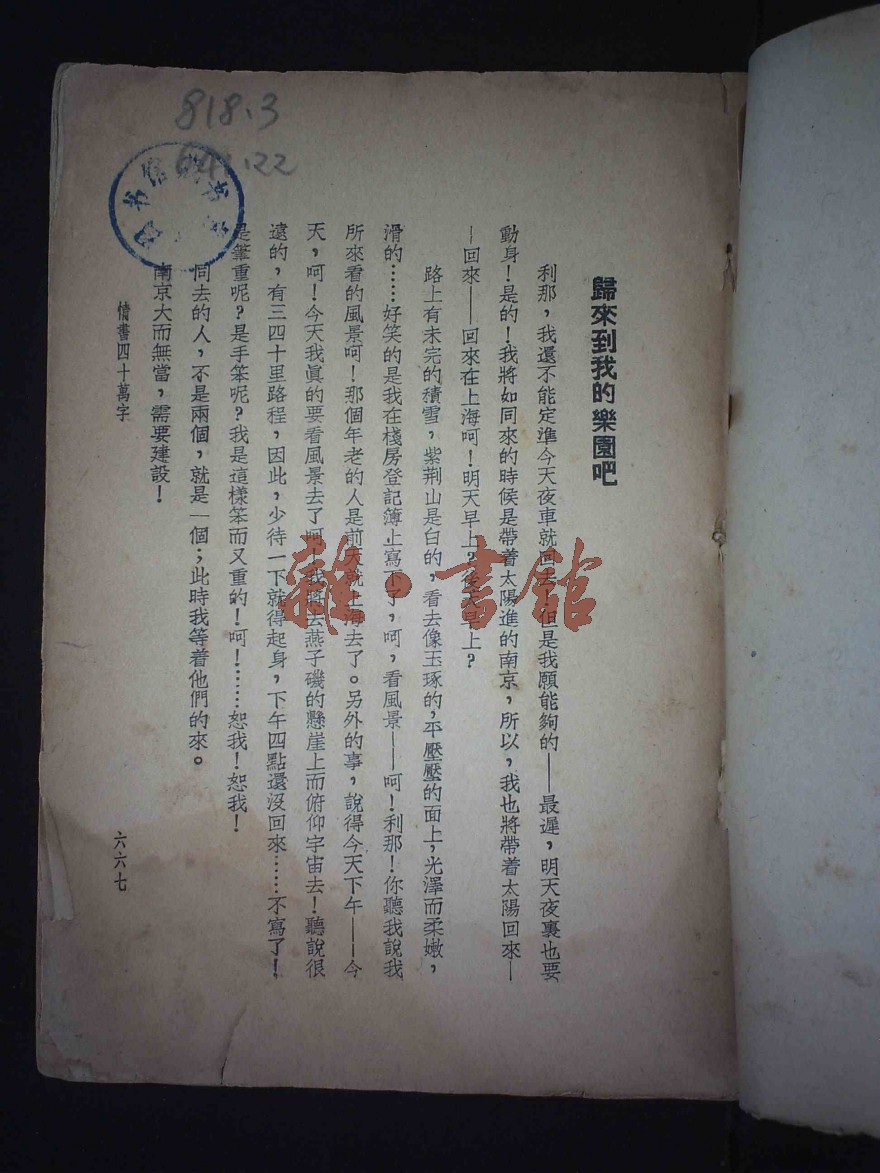 818.3
歸來到我的樂園吧
利那，我還不能定準今天夜車就回去，但是我願能夠的——最遲，明天夜裏也要
動身！是的！我將如同來的時候是帶着太陽進的南京，所以，我也將帶着太陽回來—
—回來——回來在上海呵！明天早上？後天早上？
路上有未完的積雪，紫荆山是白的，看去像玉琢的，平壓壓的面上，光澤而柔嫩，
滑的……好笑的是我在棧房登記簿上寫下了，呵，看風景——呵！利那！你聽我說我
所來看的風景呵！那個年老的人是前天就上海去了。另外的事，說得今天下午——今
天，呵！今天我眞的要看風景去了呵！我將去燕子磯的懸崖上而俯仰宇宙去！聽說很
遠的，有三四十里路程，因此，少待一下就得起身，下午四點還沒回來……不寫了！
是筆重呢？是手笨呢？我是這樣笨而又重的！呵！……恕我！恕我！
同去的人，不是兩個，就是一個；此時我等着他們的來。
南京大而無當，需要建設！
情書四十萬字
六六七
雜·書館